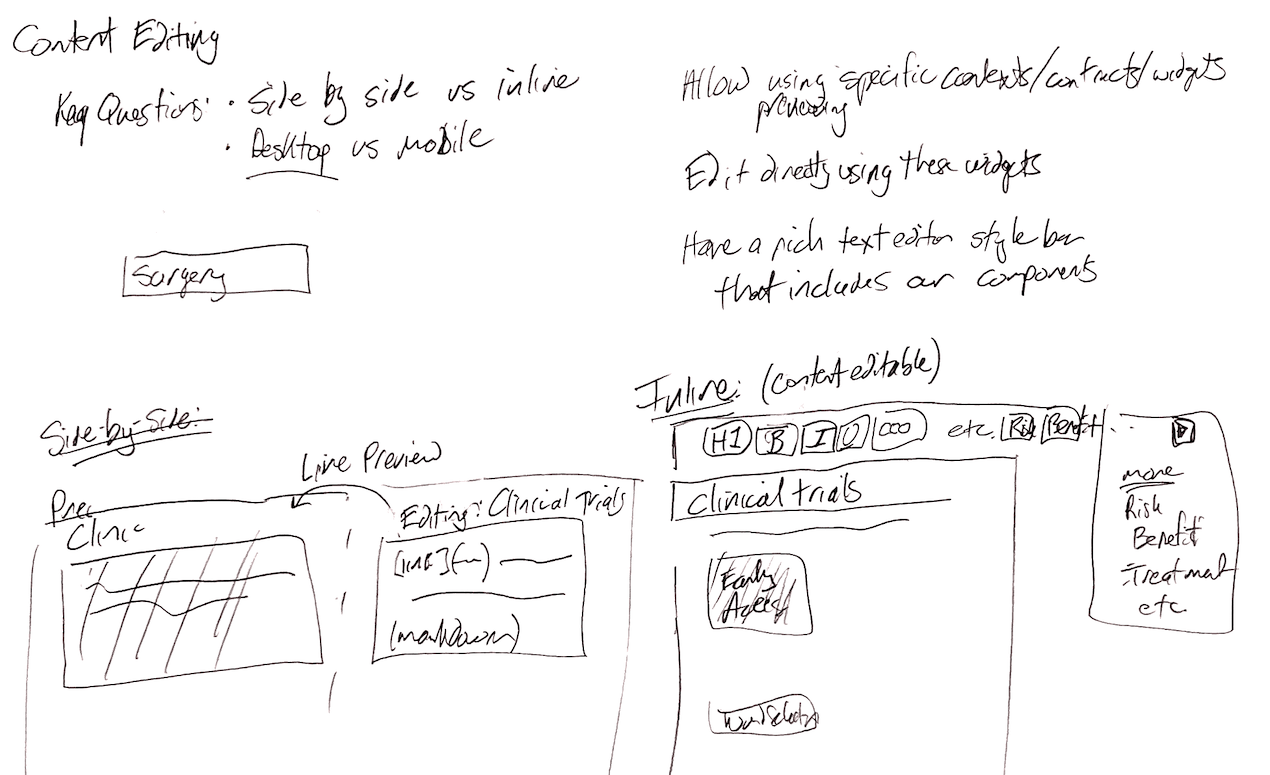 Content Editing
Key Questions: • Side by side vs inline
• Desktop vs mobile
Surgery
Allow using specific contexts/contracts/widgets
previewing
Edit directly using these widgets
Have a rich text editor style bar
that includes our components
Side-by-Side:
Live Preview
Prev
Clinic
Editing: Clinical Trials
[link](~)
(markdown)
Inline: (content editable)
H1 B I 0 ooo etc. Risk Benefit ..
Clinical trials
Early
Access
more
Risk
Benefit
Treatment
etc.